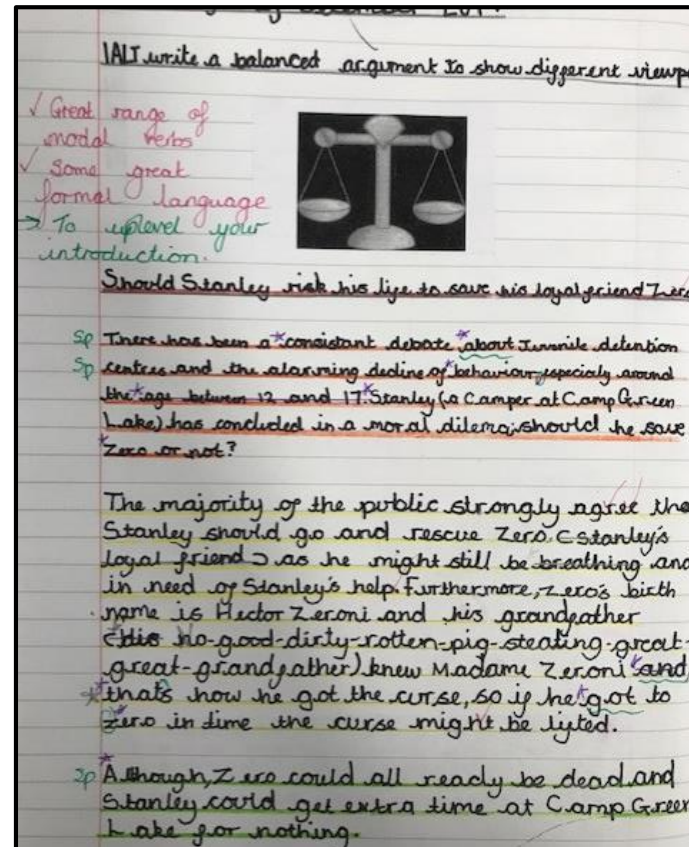 IALT write a balanced argument to show different viewp
✓ Great range of
modal verbs
✓ Some great
formal language
→ To uplevel your
introduction.
Should Stanley risk his life to save his loyal friend Zero
Sp There has been a *consistant debate *about Juvenile detention
Sp centres and the alarming decline of *behaviour, especialy around
the *age between 12 and 17. *Stanley (a Camper at Camp Green
Lake) has concluded in a moral dilema, should he save
*Zero or not?
The majority of the public strongly agree tha
Stanley should go and rescue Zero (Stanley's
loyal friend) as he might still be breathing and
in need of Stanley's help. Furthermore, Zero's birth
name is Hector Zeroni and his grandfather
(his no-good-dirty-rotten-pig-stealing-great-
great-grandfather) knew Madame Zeroni *and
*thats how he got the curse, so if he *got to
Zero in time the curse might be lifted.
Sp Although, Zero could all ready be dead and
Stanley could get extra time at Camp Green
Lake for nothing.